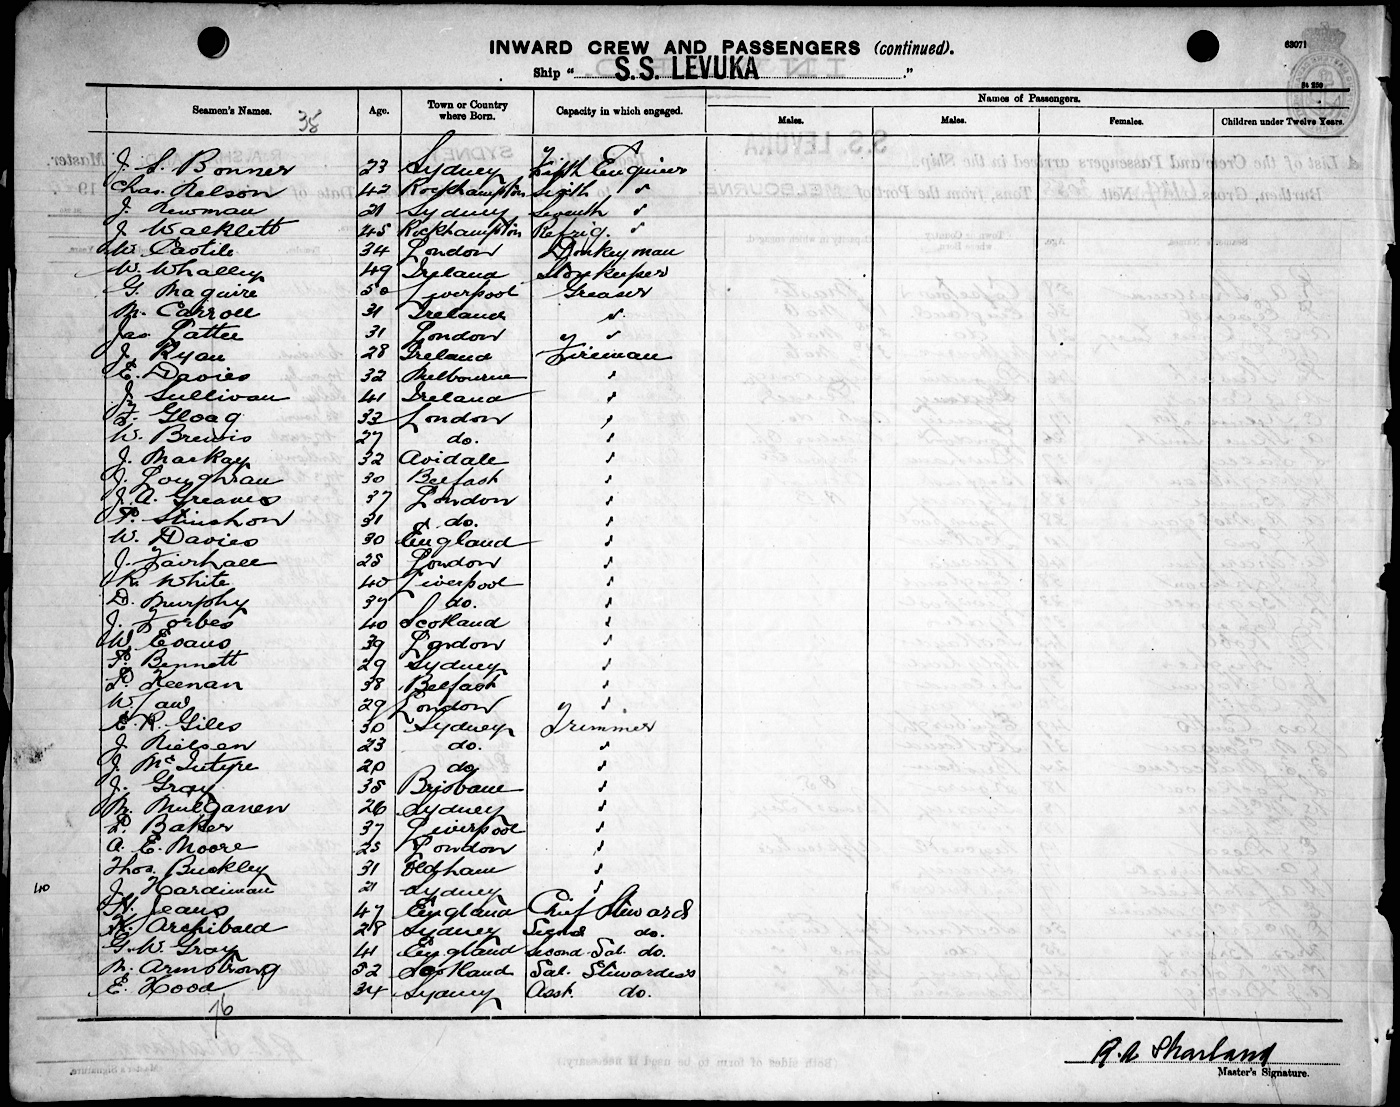 INWARD CREW AND PASSENGERS (continued).
63071
Ship " S.S. LEVUKA "
84 250
Names of Passengers.
Seamen's Names. Age. Town or Country where Born. Capacity in which engaged. Males. Males. Females. Children under Twelve Years.
38
J. S. Bonner 23 Sydney Fifth Engineer
Chas. Nelson 42 Rockhampton Sixth "
J. Newman 21 Sydney Seventh "
J. Walklett 45 Rockhampton Refrig. "
W. Castile 34 London Donkeyman
W. Whalley 49 Ireland Storekeeper
G. Maguire 50 Liverpool Greaser
M. Carroll 31 Ireland "
Jas 31 London "
J. Ryan 28 Ireland Fireman
E. Davies 32 Melbourne "
J. Sullivan 41 Ireland "
F. Gloag 33 London "
W. Brewis 27 do. "
J. Mackay 32 Avidale "
J. Loughran 30 Belfast "
J. A. Greaves 37 London "
31 do. "
W. Davies 30 England "
J. Fairhall 25 London "
R. White 40 Liverpool "
D. Murphy 37 do. "
J. Forbes 40 Scotland "
W. Evans 39 London "
Bennett 29 Sydney "
P. Keenan 38 Belfast "
W. 29 London "
E. R. Giles 30 Sydney Trimmer
J. Nielsen 23 do. "
J. McIntyre 20 do "
J. Gray 35 Brisbane "
M. 26 Sydney "
Baker 37 Liverpool "
A. E. Moore 25 London "
Thos. Buckley 31 Oldham "
40 J. Hardiman 21 Sydney "
H. Jeans 47 England Chief Steward
Archibald 28 Sydney Second do.
G. W. Gray 41 England Second Sal. do.
M. Armstrong 52 Scotland Sal. Stewardess
E. Hood 34 Sydney Asst. do.
76
R. A. Sharland
Master's Signature.